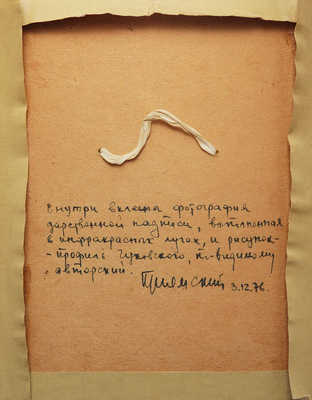 Внутри вклеена фотография
дарственной надписи, выполненная
в инфракрасных лучах, и рисунок-
-профиль Чуковского, по-видимому
, авторский.
3.12.76.